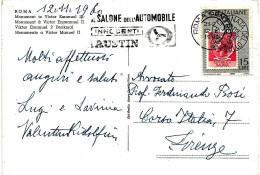 ROMA
Monumento a Vittorio Emanuele II
Monument à Victor Emmanuel II
Viktor Emanuel II Denkmal
Monument to Victor Emanuel II
12.11.1960
SALONE DELL'AUTOMOBILE
INNOCENTI
AUSTIN
ROMA
ITALIANE
15
LIRE
Molti affettuosi
auguri e saluti
Luigi e Lavinia
Valentini Ridolfini
Avvocato
Prof. Ferdinando Bosi
Corso Italia, 7
Firenze